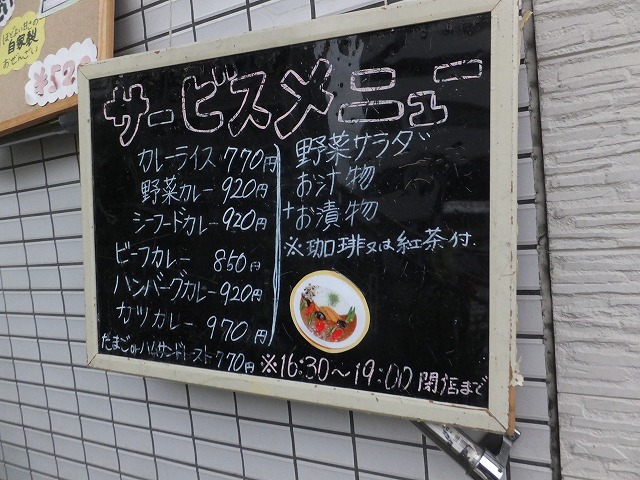 ほどよい甘さの
自家製
おぜんざい
サービスメニュー
カレーライス 770円
野菜カレー 920円
シーフードカレー 920円
ビーフカレー 850円
ハンバーグカレー 920円
カツカレー 970円
野菜サラダ
お汁物
+お漬物
※珈琲又は紅茶付.
※16:30〜19:00 閉店まで